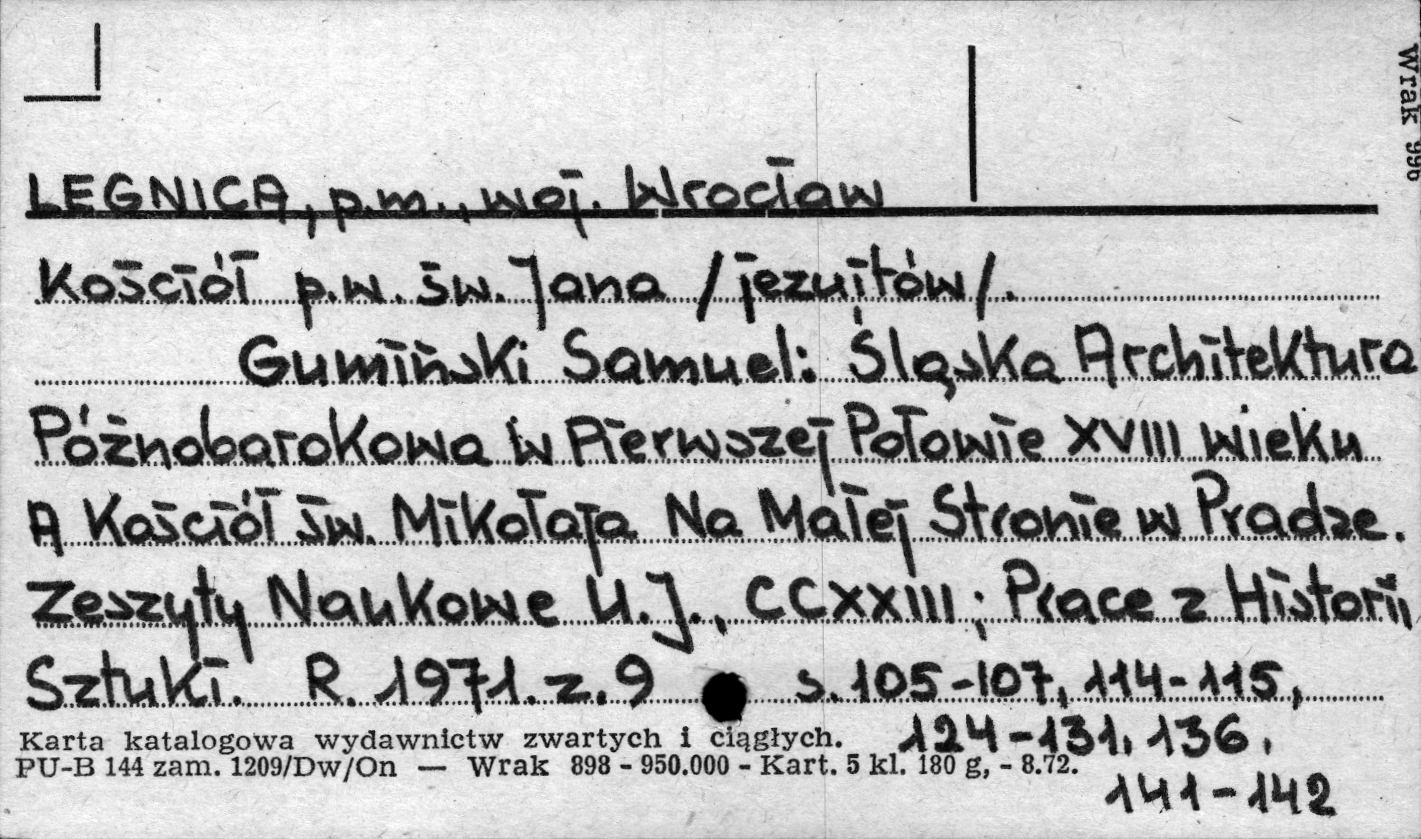 Wrak 996
LEGNICA, p.m., woj. Wrocław
Kościół p.w. św. Jana /jezuitów/.
Gumiński Samuel: Śląska Architektura
Późnobarokowa w Pierwszej Połowie XVIII wieku
A Kościół św. Mikołaja Na Małej Stronie w Pradze.
Zeszyty Naukowe U.J., CCXXIII; Prace z Historii
Sztuki. R. 1971. z. 9 s. 105-107, 114-115,
124-131, 136,
141-142
Karta katalogowa wydawnictw zwartych i ciągłych.
PU-B 144 zam. 1209/Dw/On — Wrak 898 - 950.000 - Kart. 5 kl. 180 g, - 8.72.